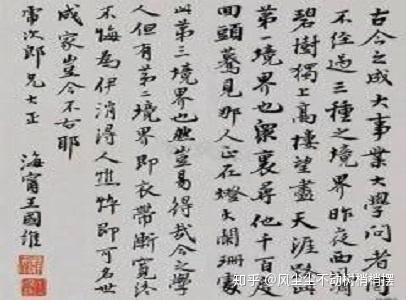 古今之成大事業大學問者罔
不徑過三種之境界昨夜西風凋
碧樹獨上高樓望盡天涯路此
第一境界也眾裏尋他千百度
回頭驀見那人正在燈火闌珊處
此第三境界也然豈易得哉今之學
人但有第二境界即衣帶漸寬終
不悔為伊消得人憔悴即可名世
成家豈今不古耶
次郎兄大正
海甯王國維
知乎 @风尘尘不动树梢梢摆